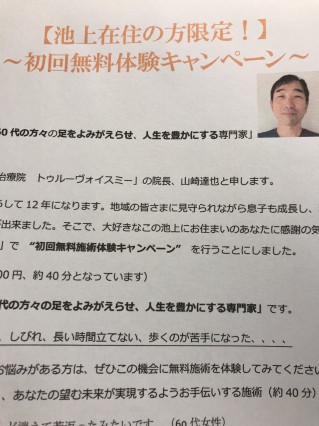 【池上在住の方限定！】
～初回無料体験キャンペーン～
60代の方々の足をよみがえらせ、人生を豊かにする専門家」
治療院　トゥルーヴォイスミー」の院長、山崎達也と申します。
して12年になります。地域の皆さまに見守られながら息子も成長し、
出来ました。そこで、大好きなこの池上にお住まいのあなたに感謝の気
」で　“初回無料施術体験キャンペーン”　を行うことにしました。
00円、約40分となっています）
代の方々の足をよみがえらせ、人生を豊かにする専門家」です。
、しびれ、長い時間立てない、歩くのが苦手になった、、、、
お悩みがある方は、ぜひこの機会に無料施術を体験してみてください
、あなたの望む未来が実現するようお手伝いする施術（約40分）
消えて若返ったみたいです。（60代女性）